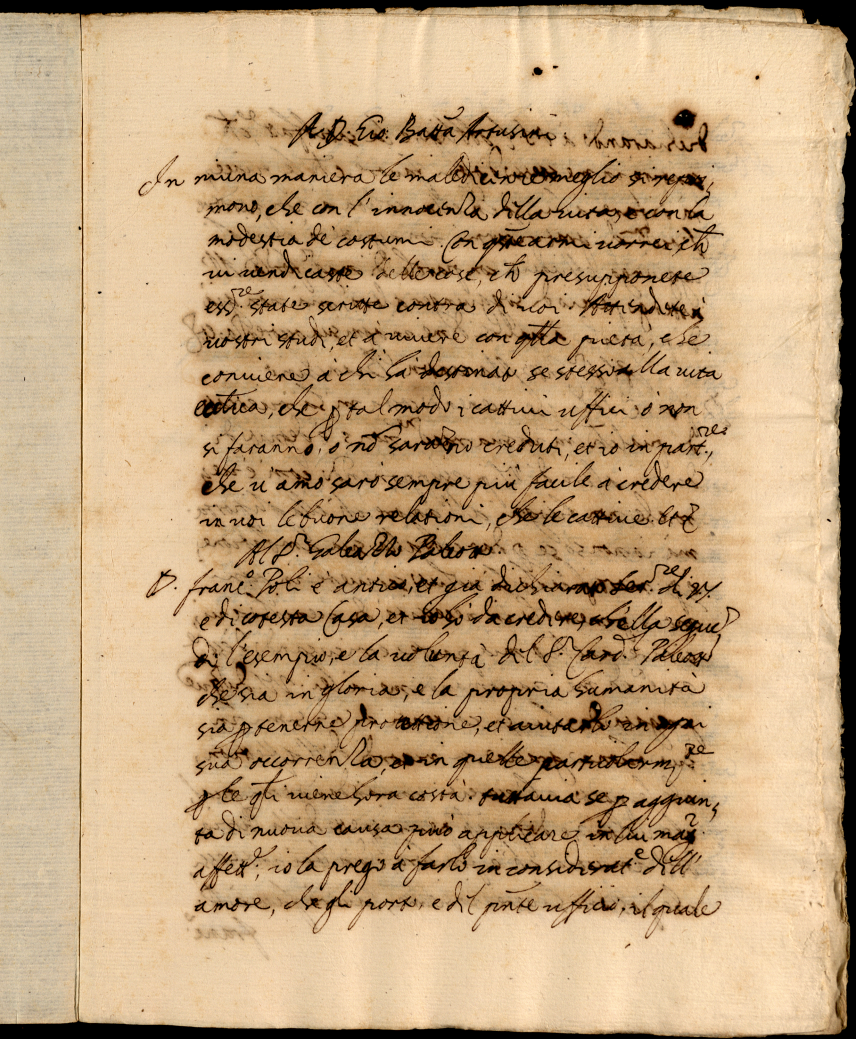 A D. Gio: Batta Artusini
In niuna maniera le maledicenze meglio si repri,
mono, che con l'innocenza della vita, e con la
modestia de costumi. Con queste armi vorrei ch
vi vendicaste delle cose, ch presupponete
ess.re state scritte contra di voi. Attendete a
vostri studi, et a vivere con qlla pietà, che
conviene à chi hà destinato se stesso alla vita
che p tal modo i cattivi uffici ò non
si faranno, ò nō saranno creduti, et io in part.re,
che v'amo sarò sempre più facile à credere
in voi le buone relationi, che le cattive. Et
Al S.r Galeazzo Paleotti
D. Franc.o Poli è antico, et già dichiarato ser.re di
e di cotesta Casa, et io hò da credere, che
l'esempio, e la volontà del S.r Card. Paleotti
che sia in gloria, e la propria humanità
sia p tenerne protettione, et aiutarlo in ogni
sua occorrenza, et in quelle particolarm.te
p le qli viene hora costà. tuttavia se p aggiun,
ta di nuova causa può applicare in lui mag.r
affett.o, io la prego à farlo in considerat.e dell'
amore, che gli porto, e del pnte ufficio, il quale